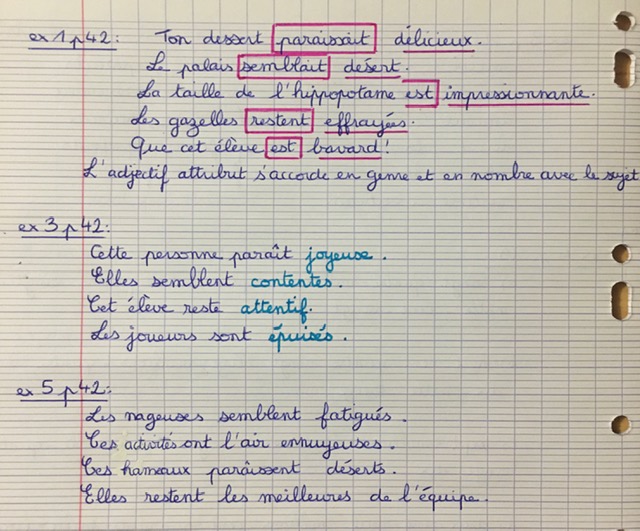 ex 1 p 42 : Ton dessert paraissait délicieux.
Le palais semblait désert.
La taille de l'hippopotame est impressionnante.
Les gazelles restent effrayées.
Que cet élève est bavard !
L'adjectif attribut s'accorde en genre et en nombre avec le sujet
ex 3 p 42 :
Cette personne paraît joyeuse.
Elles semblent contentes.
Cet élève reste attentif.
Les joueurs sont épuisés.
ex 5 p 42 :
Les nageuses semblent fatigués.
Ces activités ont l'air ennuyeuses.
Ces hameaux parâissent déserts.
Elles restent les meilleures de l'équipe.